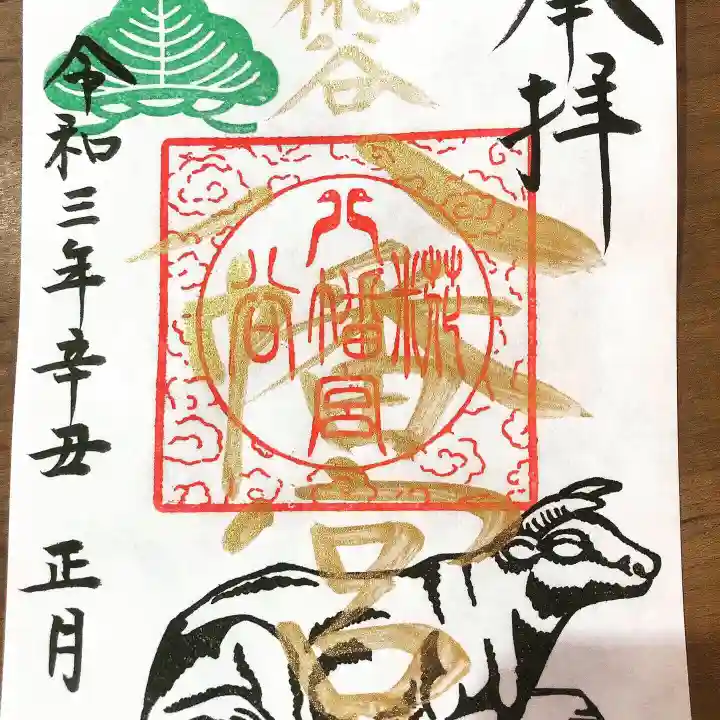 奉拝
椛谷
八幡宮
椛
八幡宮
谷
令和三年辛丑 正月